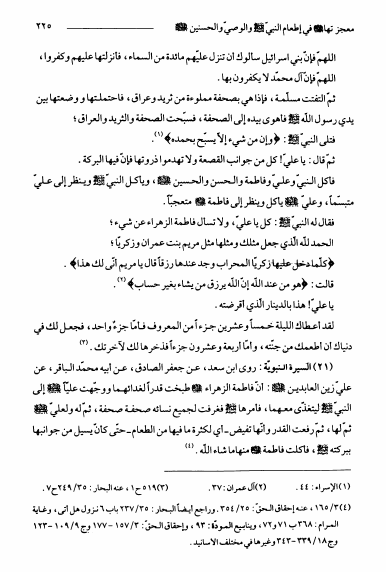 معجزتها ﷺ في إطعام النبيّ ﷺ والوصيّ والحسنين ﷺ ٢٢٥
اللهم فإنّ بني اسرائيل سألوك أن تنزل عليهم مائدة من السماء، فأنزلتها عليهم وكفروا،
اللهم فإنّ آل محمّد لا يكفرون بها.
ثمّ التفتت مسلّمة، فإذا هي بصحفة مملوءة من ثريد وعراق، فاحتملتها ووضعتها بين
يدي رسول الله ﷺ فأهوى بيده إلى الصحفة، فسبّحت الصحفة والثريد والعراق؛
فتلى النبيّ ﷺ: ﴿وإن من شيء إلاّ يسبّح بحمده﴾(١).
ثمّ قال: يا عليّ! كل من جوانب القصعة ولا تهدموا ذروتها فإنّ فيها البركة.
فأكل النبيّ وعليّ وفاطمة والحسن والحسين ﷺ، ويأكل النبيّ ﷺ وينظر إلى عليّ
متبسّماً، وعليّ ﷺ يأكل وينظر إلى فاطمة ﷺ متعجّباً.
فقال له النبيّ ﷺ: كل يا عليّ، ولا تسأل فاطمة الزهراء عن شيء؛
الحمد لله الّذي جعل مثلك ومثلها مثل مريم بنت عمران وزكريّا؛
﴿كلّما دخل عليها زكريّا المحراب وجد عندها رزقاً قال يا مريم أنّى لك هذا﴾.
قالت: ﴿هو من عند الله إنّ الله يرزق من يشاء بغير حساب﴾(٢).
يا عليّ! هذا بالدينار الّذي أقرضته.
لقد أعطاك الليلة خمساً وعشرين جزءاً من المعروف فأمّا جزءً واحد، فجعل لك في
دنياك أن أطعمك من جنّته، وأمّا أربعة وعشرون جزءاً فذخرها لك لآخرتك.(٣)
(٢١) السيرة النبويّة: روى ابن سعد، عن جعفر الصادق، عن أبيه محمّد الباقر، عن
عليّ زين العابدين ﷺ: أنّ فاطمة الزهراء ﷺ طبخت قدراً لغدائهما ووجّهت عليّاً ﷺ إلى
النبيّ ﷺ ليتغدّى معهما، فأمرها ﷺ فغرفت لجميع نسائه صحفة صحفة، ثمّ له ولعليّ ﷺ
ثمّ لها، ثمّ رفعت القدر وإنّها تفيض-أي لكثرة ما فيها من الطعام-حتّى كان يسيل من جوانبها
ببركته ﷺ، فأكلت فاطمة ﷺ منها ماشاء الله.(٤)
(١) الإسراء: ٤٤. (٢) آل عمران: ٣٧. (٣) ٥١٩ ح١، عنه البحار: ٢٤٩/٣٥ ح٧.
(٤) ١٦٥/٣، عنه إحقاق الحقّ: ٣٥٤/٢٥. وراجع أيضاً البحار: ٢٣٧/٣٥ باب ٦ نزول هل أتى، وغاية
المرام: ٣٦٨ ب ٧١ و٧٢، وينابيع المودّة: ٩٣، وإحقاق الحقّ: ١٥٧/٣-١٧٧ وج ١٠٩/٩-١٢٣
وج١٨/٣٣٩-٣٤٣ وغيرها في مختلف الأسانيد.